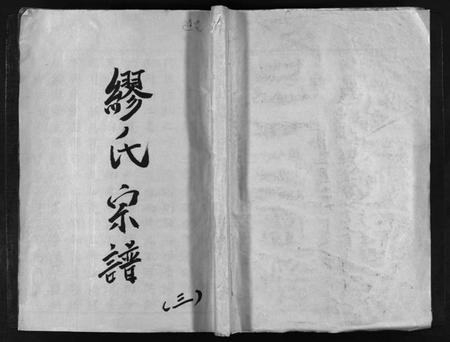 繆氏宗譜
（三）